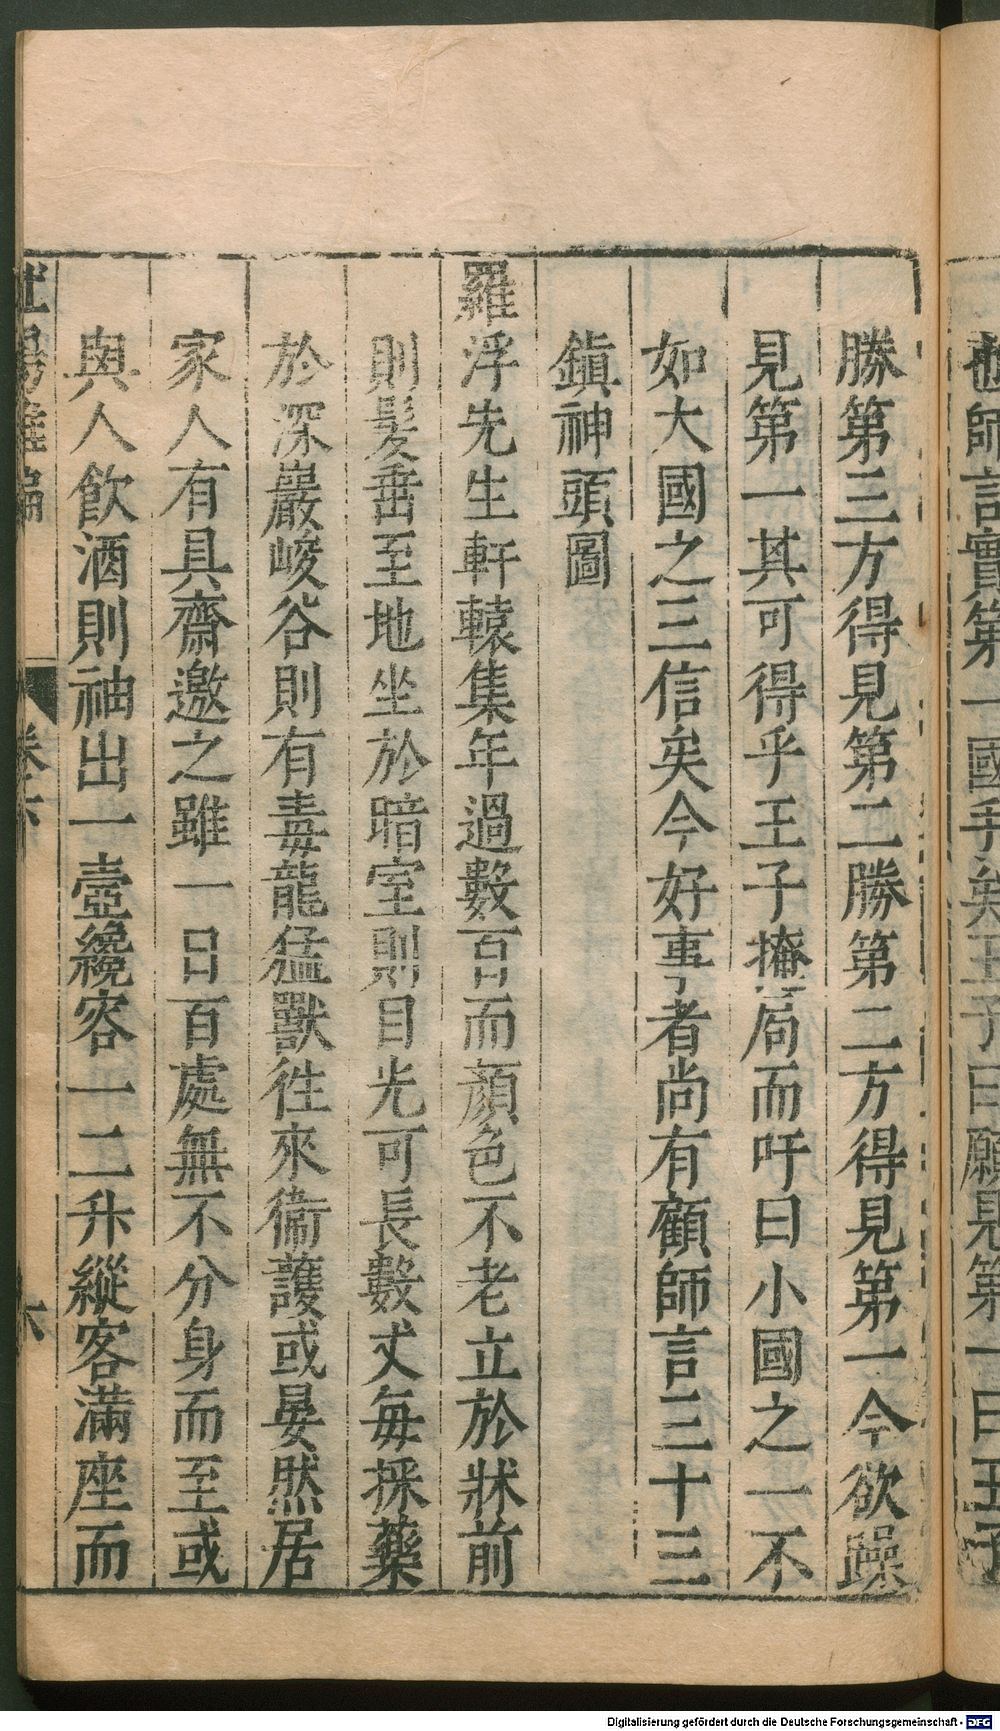 師言實第一國手矣王子曰願見第一曰王子
勝第三方得見第二勝第二方得見第一今欲躁
見第一其可得乎王子掩局而吁曰小國之一不
如大國之三信矣今好事者尚有顧師言三十三
鎮神頭圖
羅浮先生軒轅集年過數百而顏色不老立於牀前
則髮垂至地坐於暗室則目光可長數丈每採藥
於深巖峻谷則有毒龍猛獸徃來衞護或晏然居
家人有具齋邀之雖一日百處無不分身而至或
與人飲酒則袖出一壺纔容一二升縱客滿座而
杜陽雜編 卷下 六
Digitalisierung gefördert durch die Deutsche Forschungsgemeinschaft - DFG